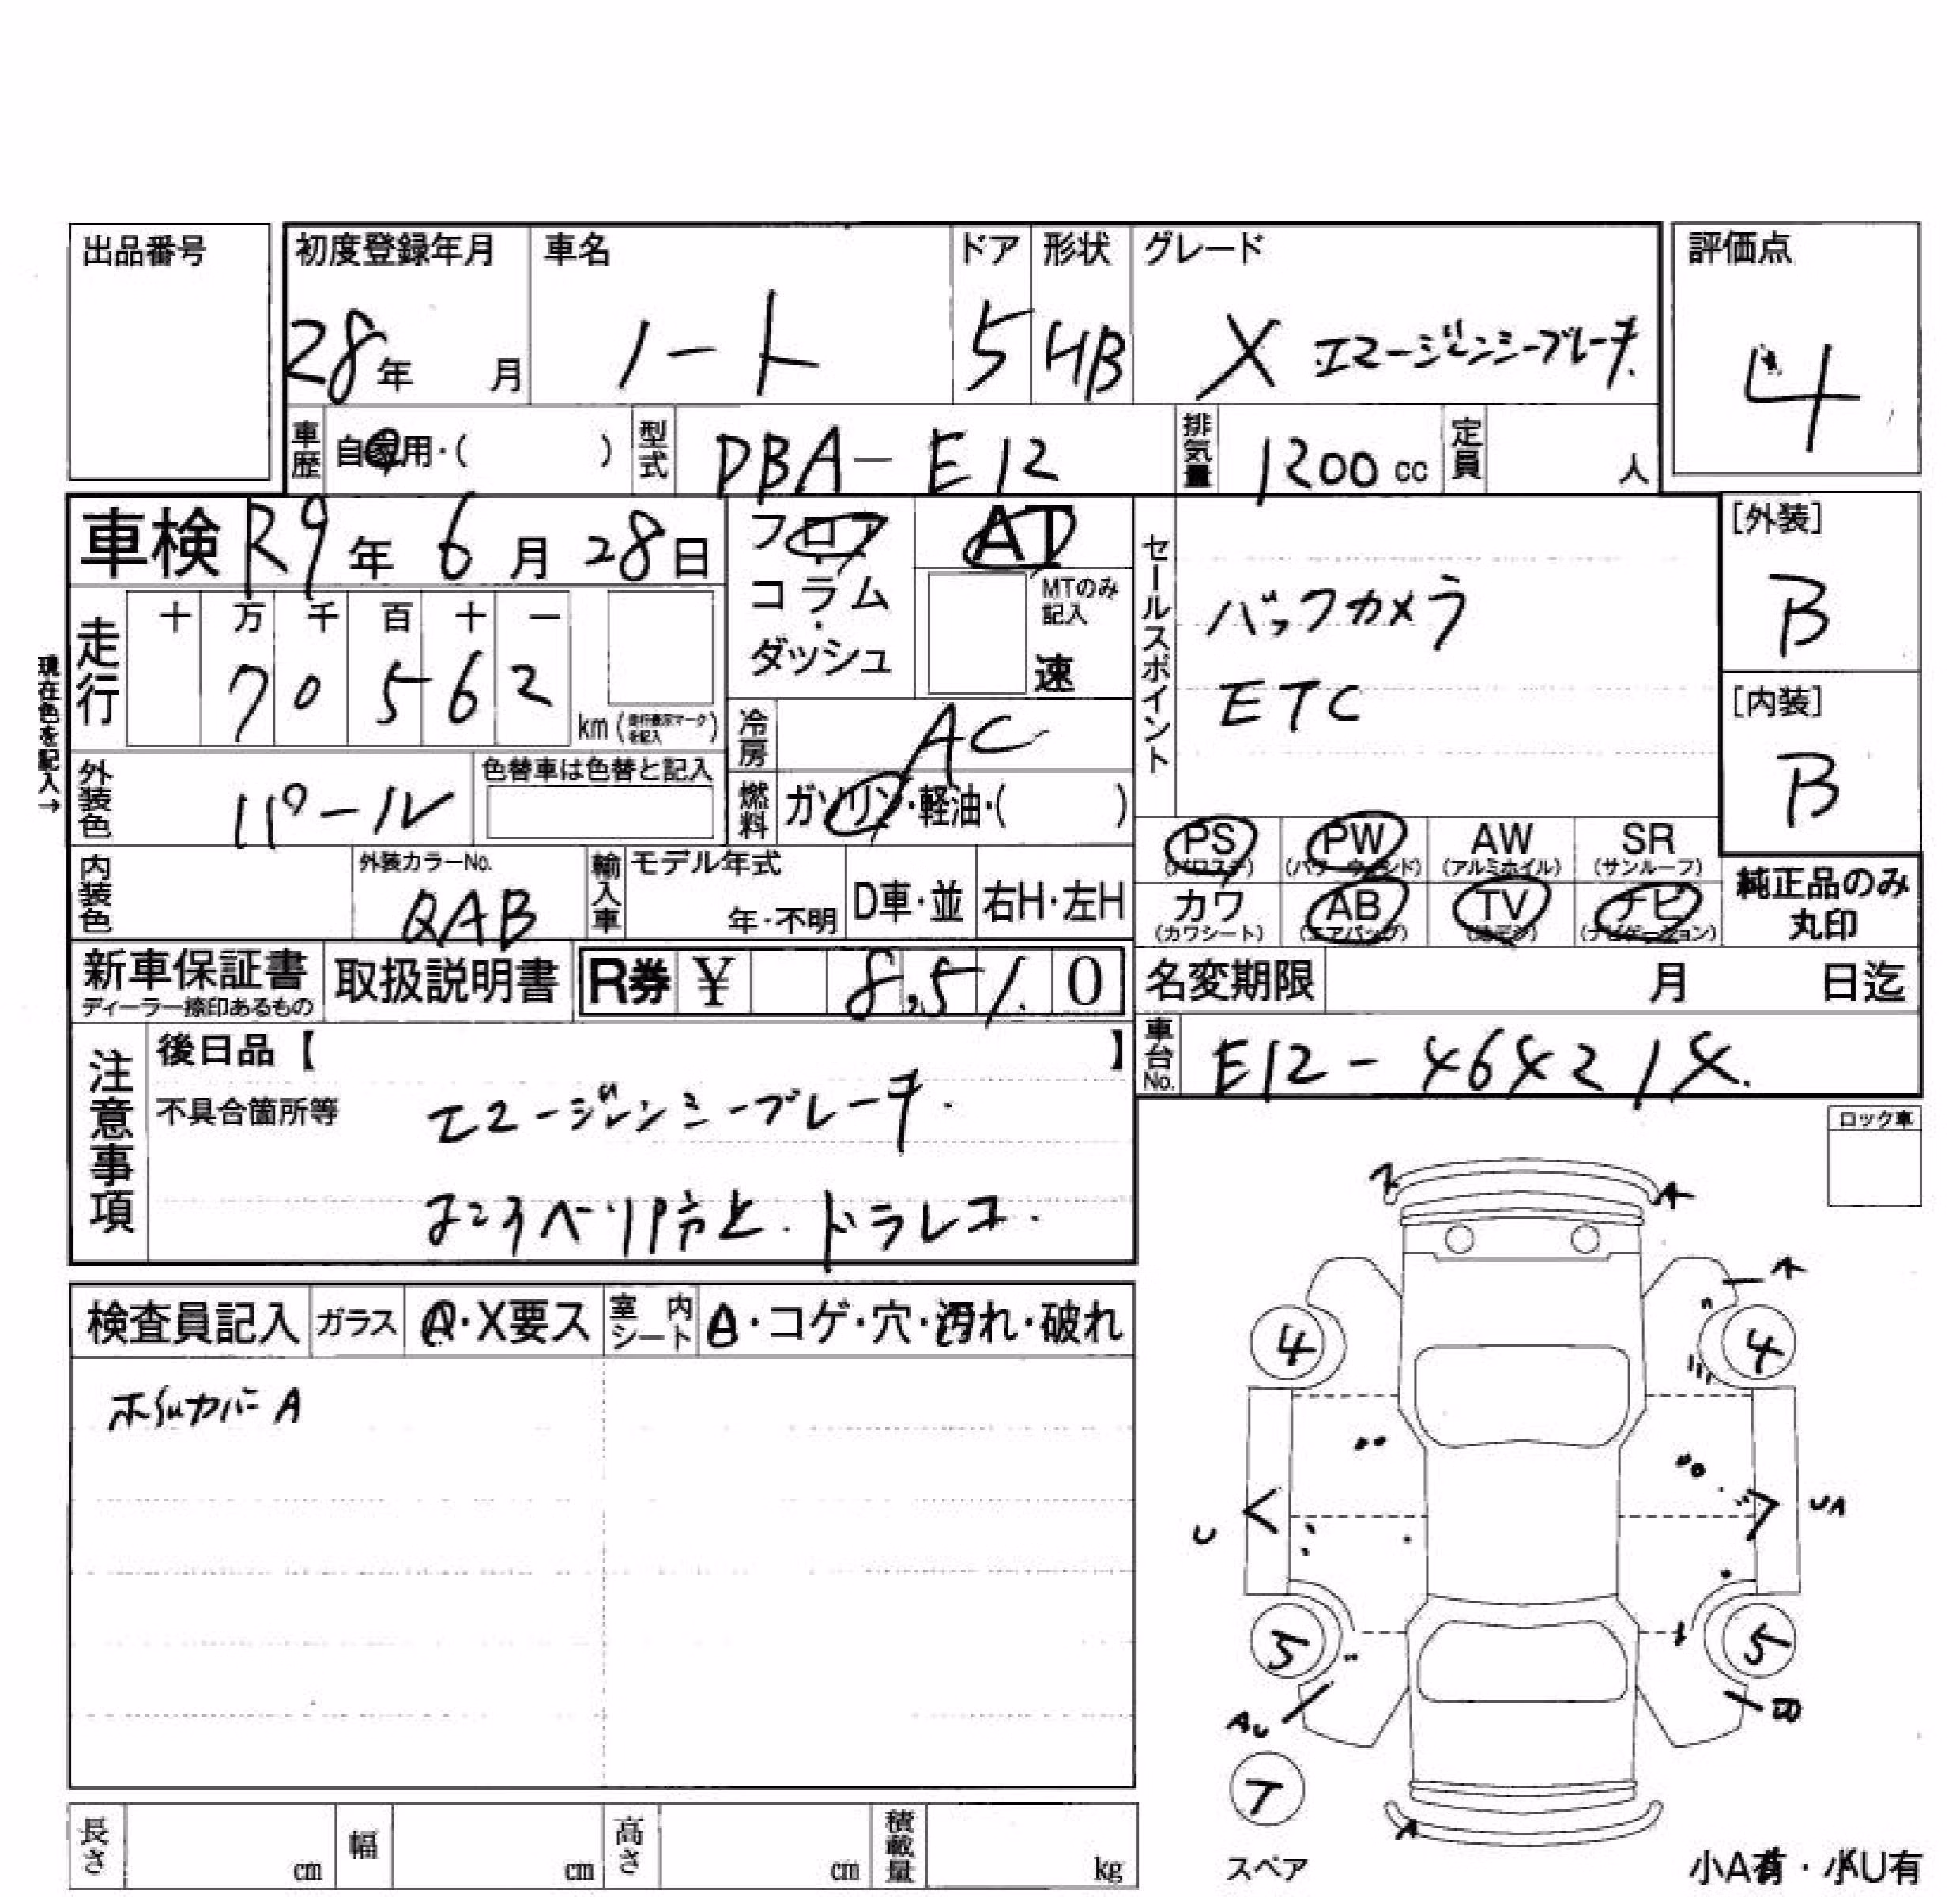 出品番号
初度登録年月 車名 ドア 形状 グレード 評価点
28年 月 ノート 5 HB X エマージェンシーブレーキ 4
車歴 自家用・( ) 型式 DBA-E12 排気量 1200 cc 定員 人
車検 R9年 6月 28日 フロア AT
コラム・ MTのみ記入
ダッシュ 速
走行 十 万 千 百 十 一
70562 km
現在色を記入→
セールスポイント
バックカメラ
ETC
[外装]
B
[内装]
B
冷房 AC
外装色 パール 色替車は色替と記入
燃料 ガソリン・軽油・( )
PS PW AW SR
(パワステ) (パワーウィンド) (アルミホイル) (サンルーフ)
カワ AB TV ナビ
(カワシート) (エアバッグ) (ナビゲーション)
純正品のみ
丸印
内装色 外装カラーNo. QAB 輸入車 モデル年式 年・不明 D車・並 右H・左H
新車保証書 取扱説明書 R券 ¥ 8,510
ディーラー捺印あるもの
名変期限 月 日迄
車台No. E12-464214
注意事項
後日品【 】
不具合箇所等 エマージェンシーブレーキ.
よこすべり防止.ドラレコ.
ロック車
検査員記入 ガラス A・X要ス 室内シート A・コゲ・穴・汚れ・破れ
ホイルカバーA
A
A
4 4
U UA
5 5
AU
T
A
スペア
小A有・小U有
長さ cm 幅 cm 高さ cm 積載量 kg